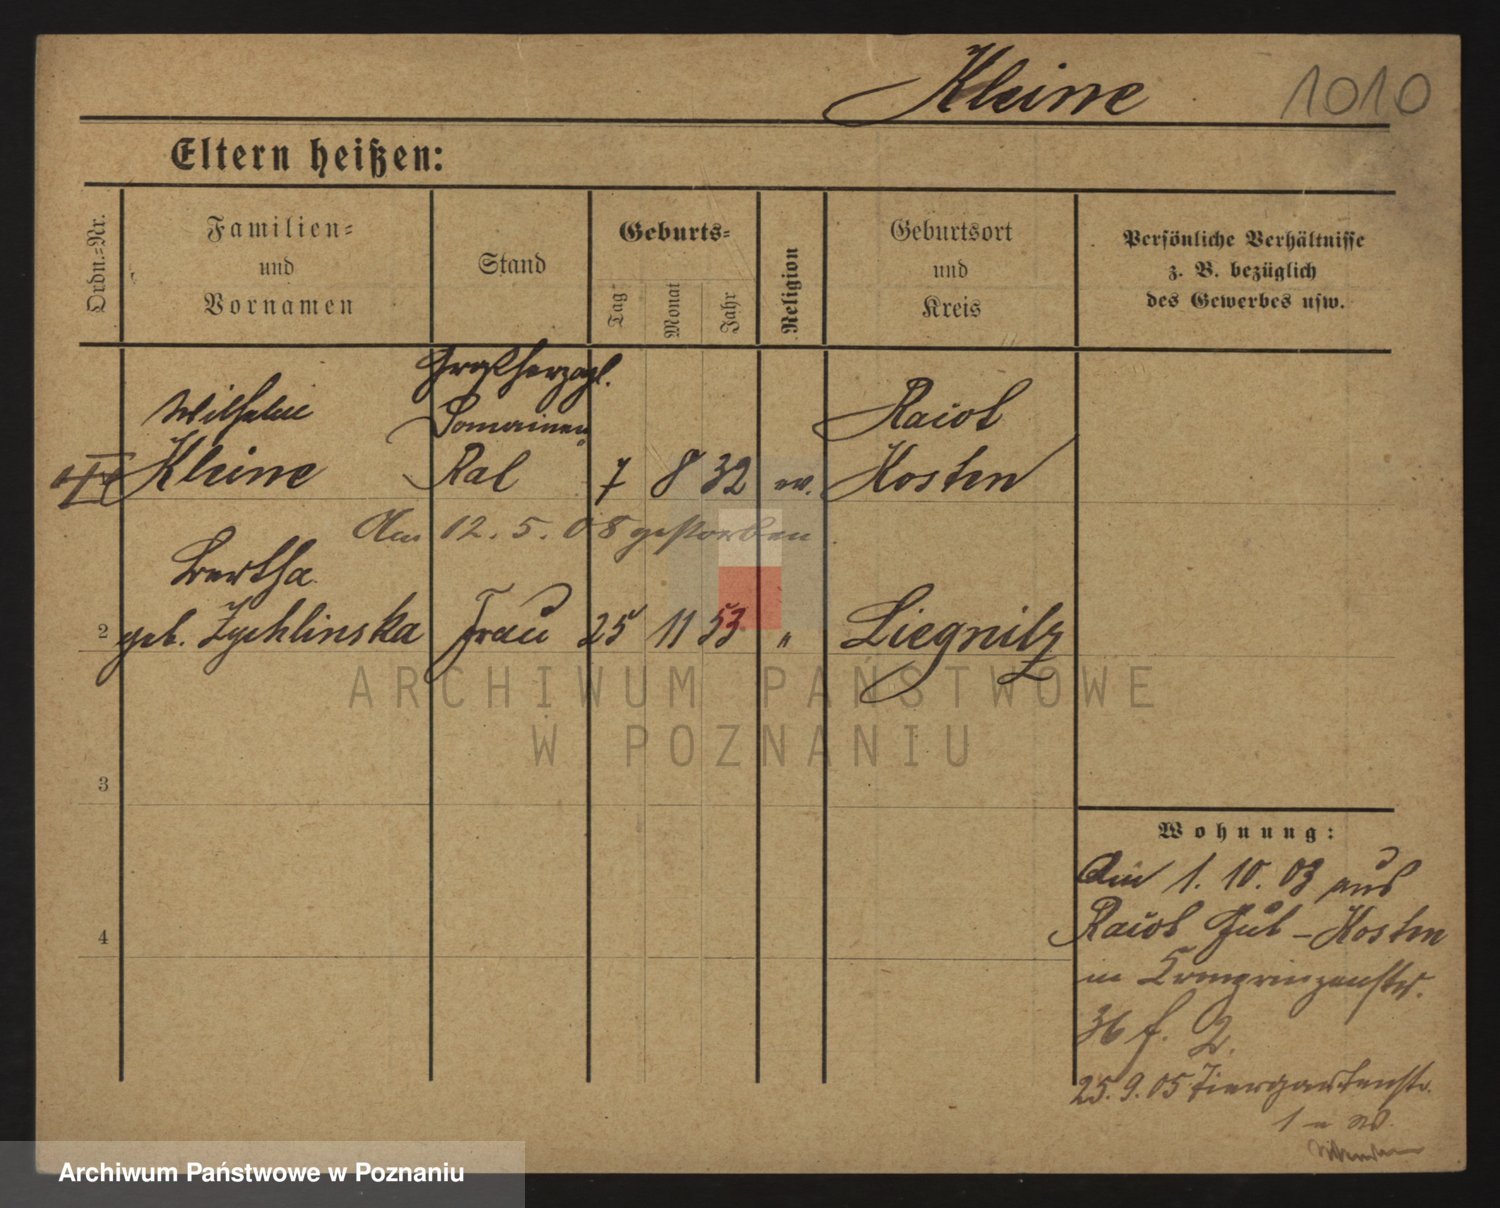 Kleine 1010
Eltern heißen:
Ordn.-Nr.
Familien-
und
Vornamen
Stand
Geburts-
Tag
Monat
Jahr
Religion
Geburtsort
und
Kreis
Persönliche Verhältnisse
z. B. bezüglich
des Gewerbes usw.
Großherzogl.
Wilhelm Domainen Raiot
Kleine Rat 7 8 32 ev. Kosten
Am 12. 5. 08 gestorben.
Bertha
2 geb. Zychlinska Frau 25 11 53 " Liegnitz
ARCHIWUM PAŃSTWOWE
W POZNANIU
3
4
Wohnung:
Am 1. 10. 03 aus
Raiot Gut - Kosten
in Kronprinzenstr.
36 f. 2.
25. 9. 05 Tiergartenstr.
Archiwum Państwowe w Poznaniu